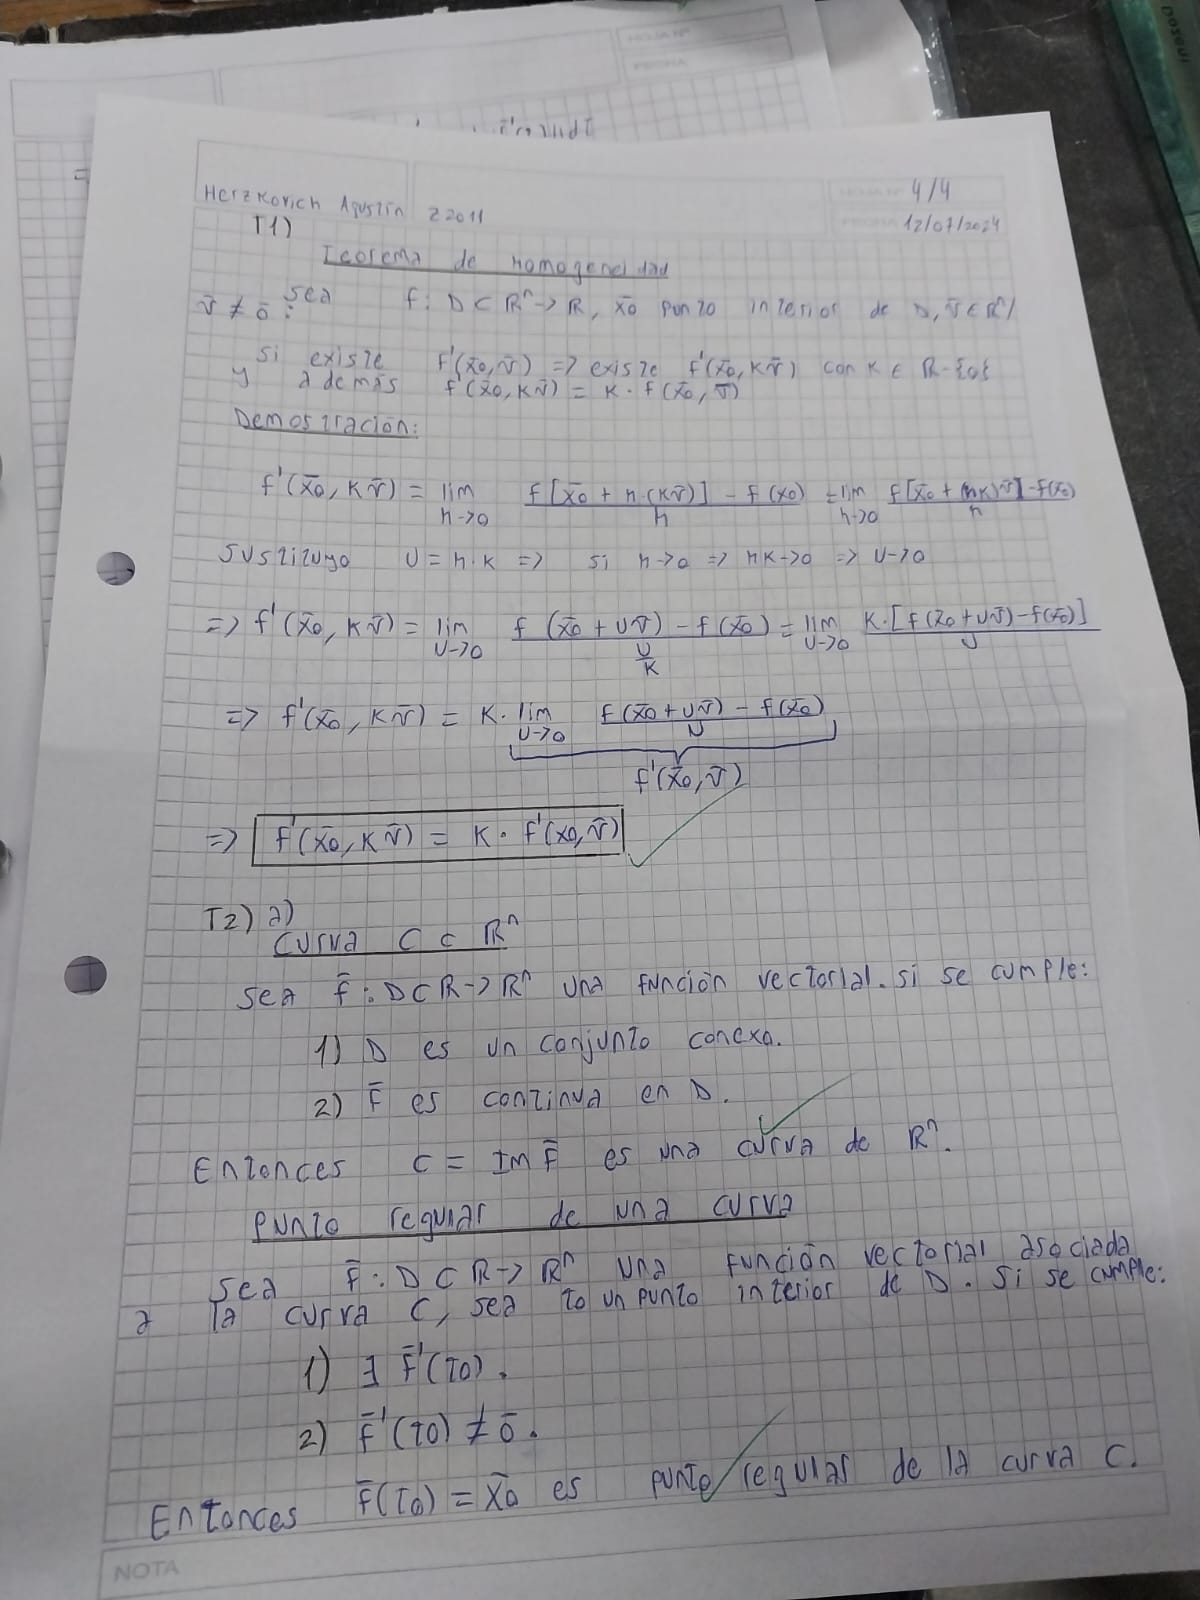 HOJA Nº
FECHA
Herzkovich Agustín Z2011
HOJA Nº 4/4
FECHA 12/07/2024
T1)
Teorema de Homogeneidad
v̄ ≠ ō : sea f: D ⊂ ℝⁿ → ℝ, x̄0 punto interior de D, v̄ ∈ ℝⁿ/
si existe f'(x̄0, v̄) => existe f'(x̄0, Kv̄) con K ∈ ℝ-{0}
y además f'(x̄0, Kv̄) = K · f(x̄0, v̄)
Demostración:
f'(x̄0, Kv̄) = lim h->0 f[x̄0 + h·(Kv̄)] - f(x0) / h = lim h->0 f[x̄0 + (hK)v̄] - f(x̄0) / h
Sustituyo U = h·K => si h->0 => hK->0 => U->0
=> f'(x̄0, Kv̄) = lim U->0 f(x̄0 + Uv̄) - f(x̄0) / U/K = lim U->0 K·[f(x̄0 + Uv̄) - f(x̄0)] / U
=> f'(x̄0, Kv̄) = K · lim U->0 f(x̄0 + Uv̄) - f(x̄0) / U
f'(x̄0, v̄)
=> f'(x̄0, Kv̄) = K · f'(x0, v̄)
T2) a)
Curva C ⊂ ℝⁿ
Sea f̄: D ⊂ ℝ -> ℝⁿ una función vectorial. si se cumple:
1) D es un conjunto conexo.
2) f̄ es continua en D.
Entonces C = Im f̄ es una curva de ℝⁿ.
Punto regular de una curva
Sea f̄: D ⊂ ℝ -> ℝⁿ una función vectorial asociada
a la curva C, sea t0 un punto interior de D. Si se cumple:
1) ∃ f̄'(t0).
2) f̄'(t0) ≠ ō.
Entonces f̄(t0) = x̄0 es punto regular de la curva C.
NOTA